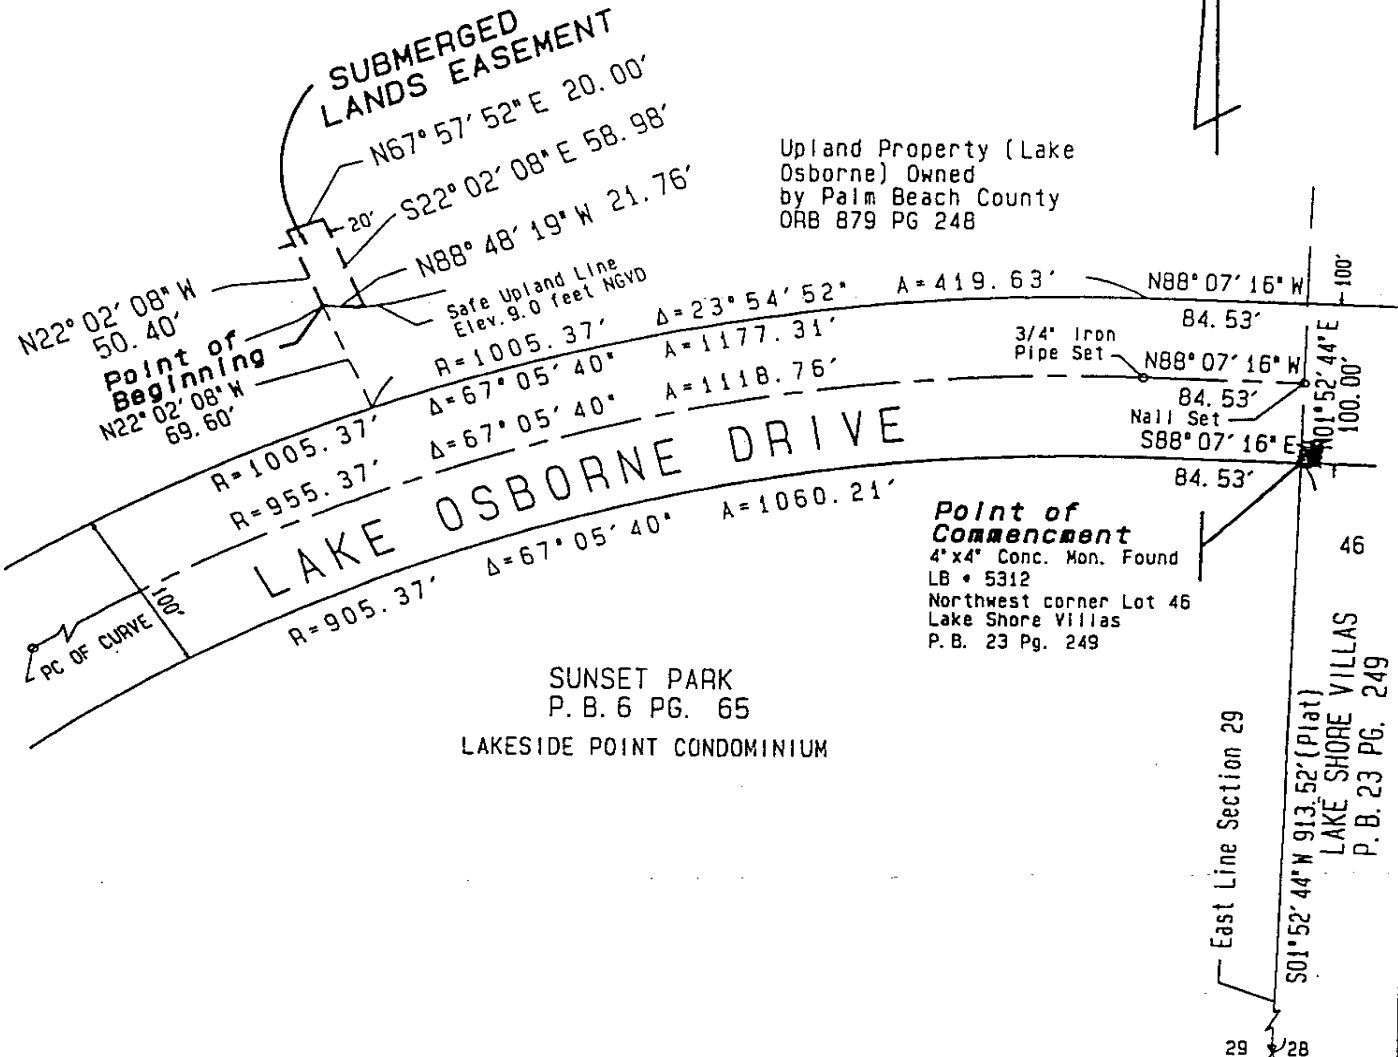 SUBMERGED
LANDS EASEMENT
N67° 57′ 52" E 20.00′
S22° 02′ 08" E 58.98′
20′
N88° 48′ 19" W 21.76′
Safe Upland Line
Elev. 9.0 feet NGVD
N22° 02′ 08" W
50.40′
Point of
Beginning
N22° 02′ 08" W
69.60′
Upland Property (Lake
Osborne) Owned
by Palm Beach County
ORB 879 PG 248
R=1005.37′ Δ=23° 54′ 52" A=419.63′
N88° 07′ 16" W
84.53′
100′
R=1005.37′ Δ=67° 05′ 40" A=1177.31′
3/4" Iron
Pipe Set
N88° 07′ 16" W
84.53′
Nail Set
N01° 52′ 44" E
100.00′
R=955.37′ Δ=67° 05′ 40" A=1118.76′
S88° 07′ 16" E
84.53′
LAKE OSBORNE DRIVE
R=905.37′ Δ=67° 05′ 40" A=1060.21′
100′
PC OF CURVE
Point of
Commencment
4"x4" Conc. Mon. Found
LB • 5312
Northwest corner Lot 46
Lake Shore Villas
P.B. 23 Pg. 249
46
SUNSET PARK
P.B.6 PG. 65
LAKESIDE POINT CONDOMINIUM
East Line Section 29
S01° 52′ 44" W 913.52′ (Plat)
LAKE SHORE VILLAS
P.B. 23 PG. 249
29 28